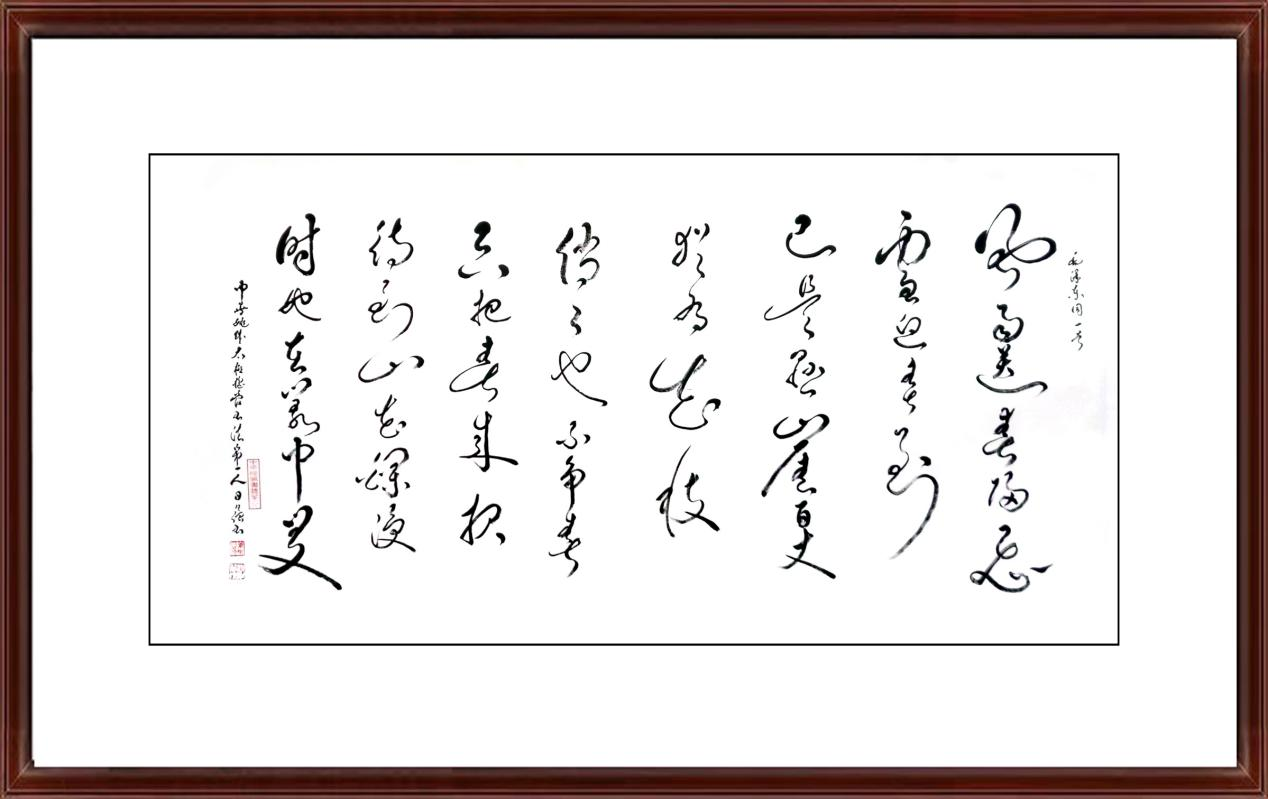 毛泽东词一首
风雨送春归飞
雪迎春到
已是悬崖百丈
犹有花枝
俏俏也不争春
只把春来报
待到山花烂漫
时她在丛中笑
中华姚体书法第一人日强书